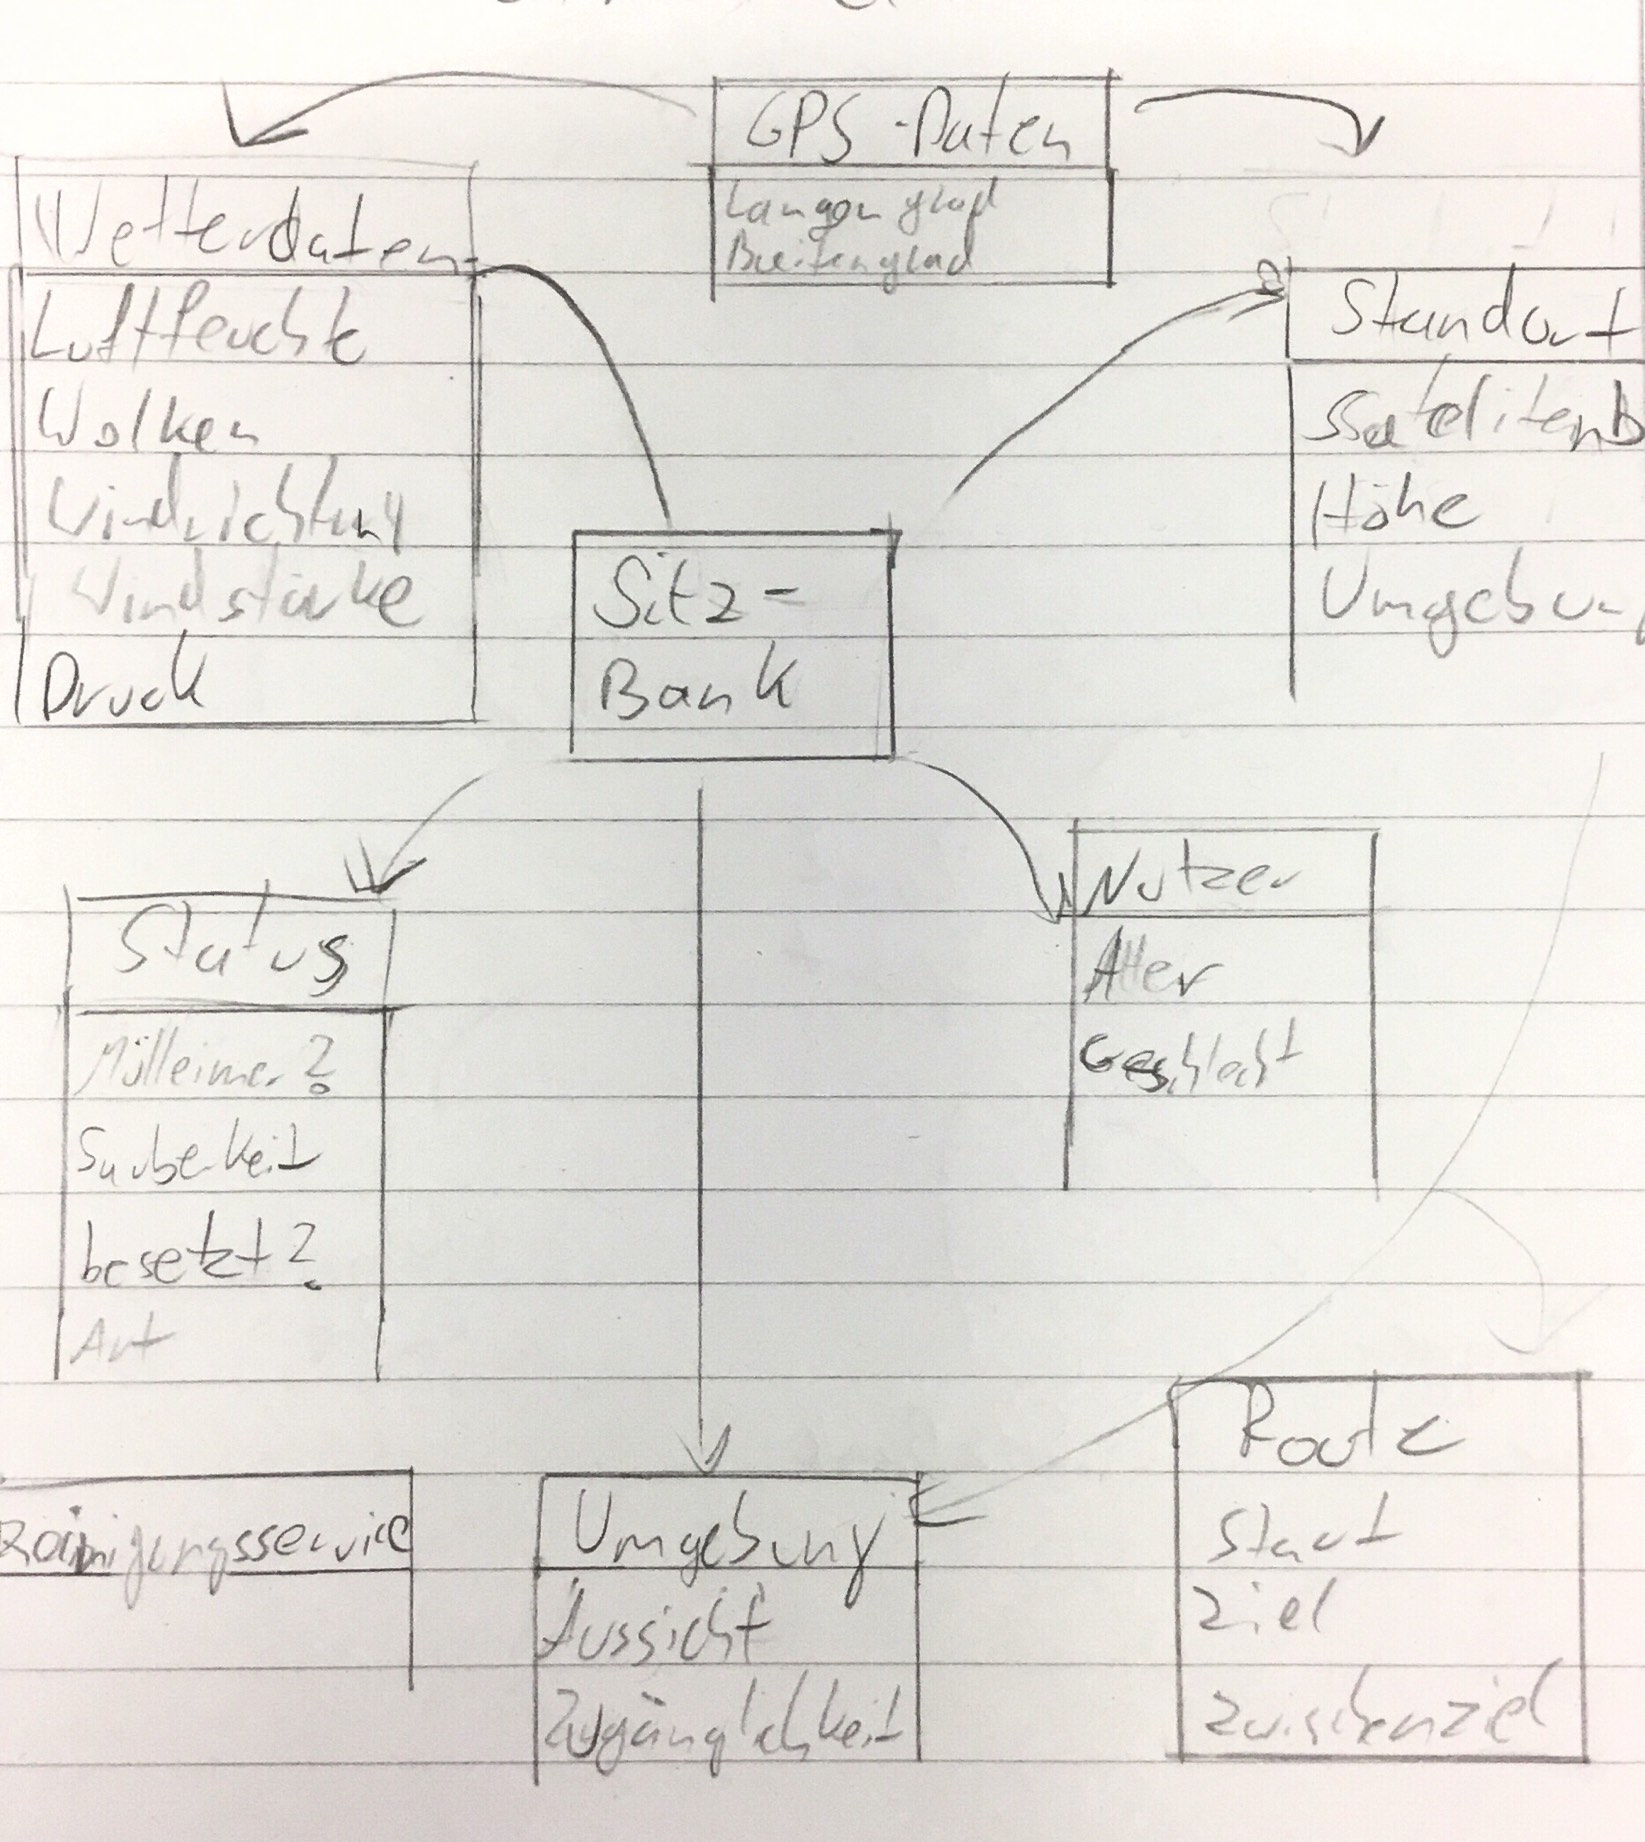 GPS-Daten
Längengrad
Breitengrad
Wetterdaten
Luftfeuchte
Wolken
Windrichtung
Windstärke
Druck
Standort
SatelitenB
Höhe
Umgebung
Sitz-
Bank
Status
Mülleimer?
Sauberkeit
besetzt?
Art
Nutzer
Alter
Geschlecht
Reinigungsservice
Umgebung
Aussicht
Zugänglichkeit
Route
Start
Ziel
Zwischenziel